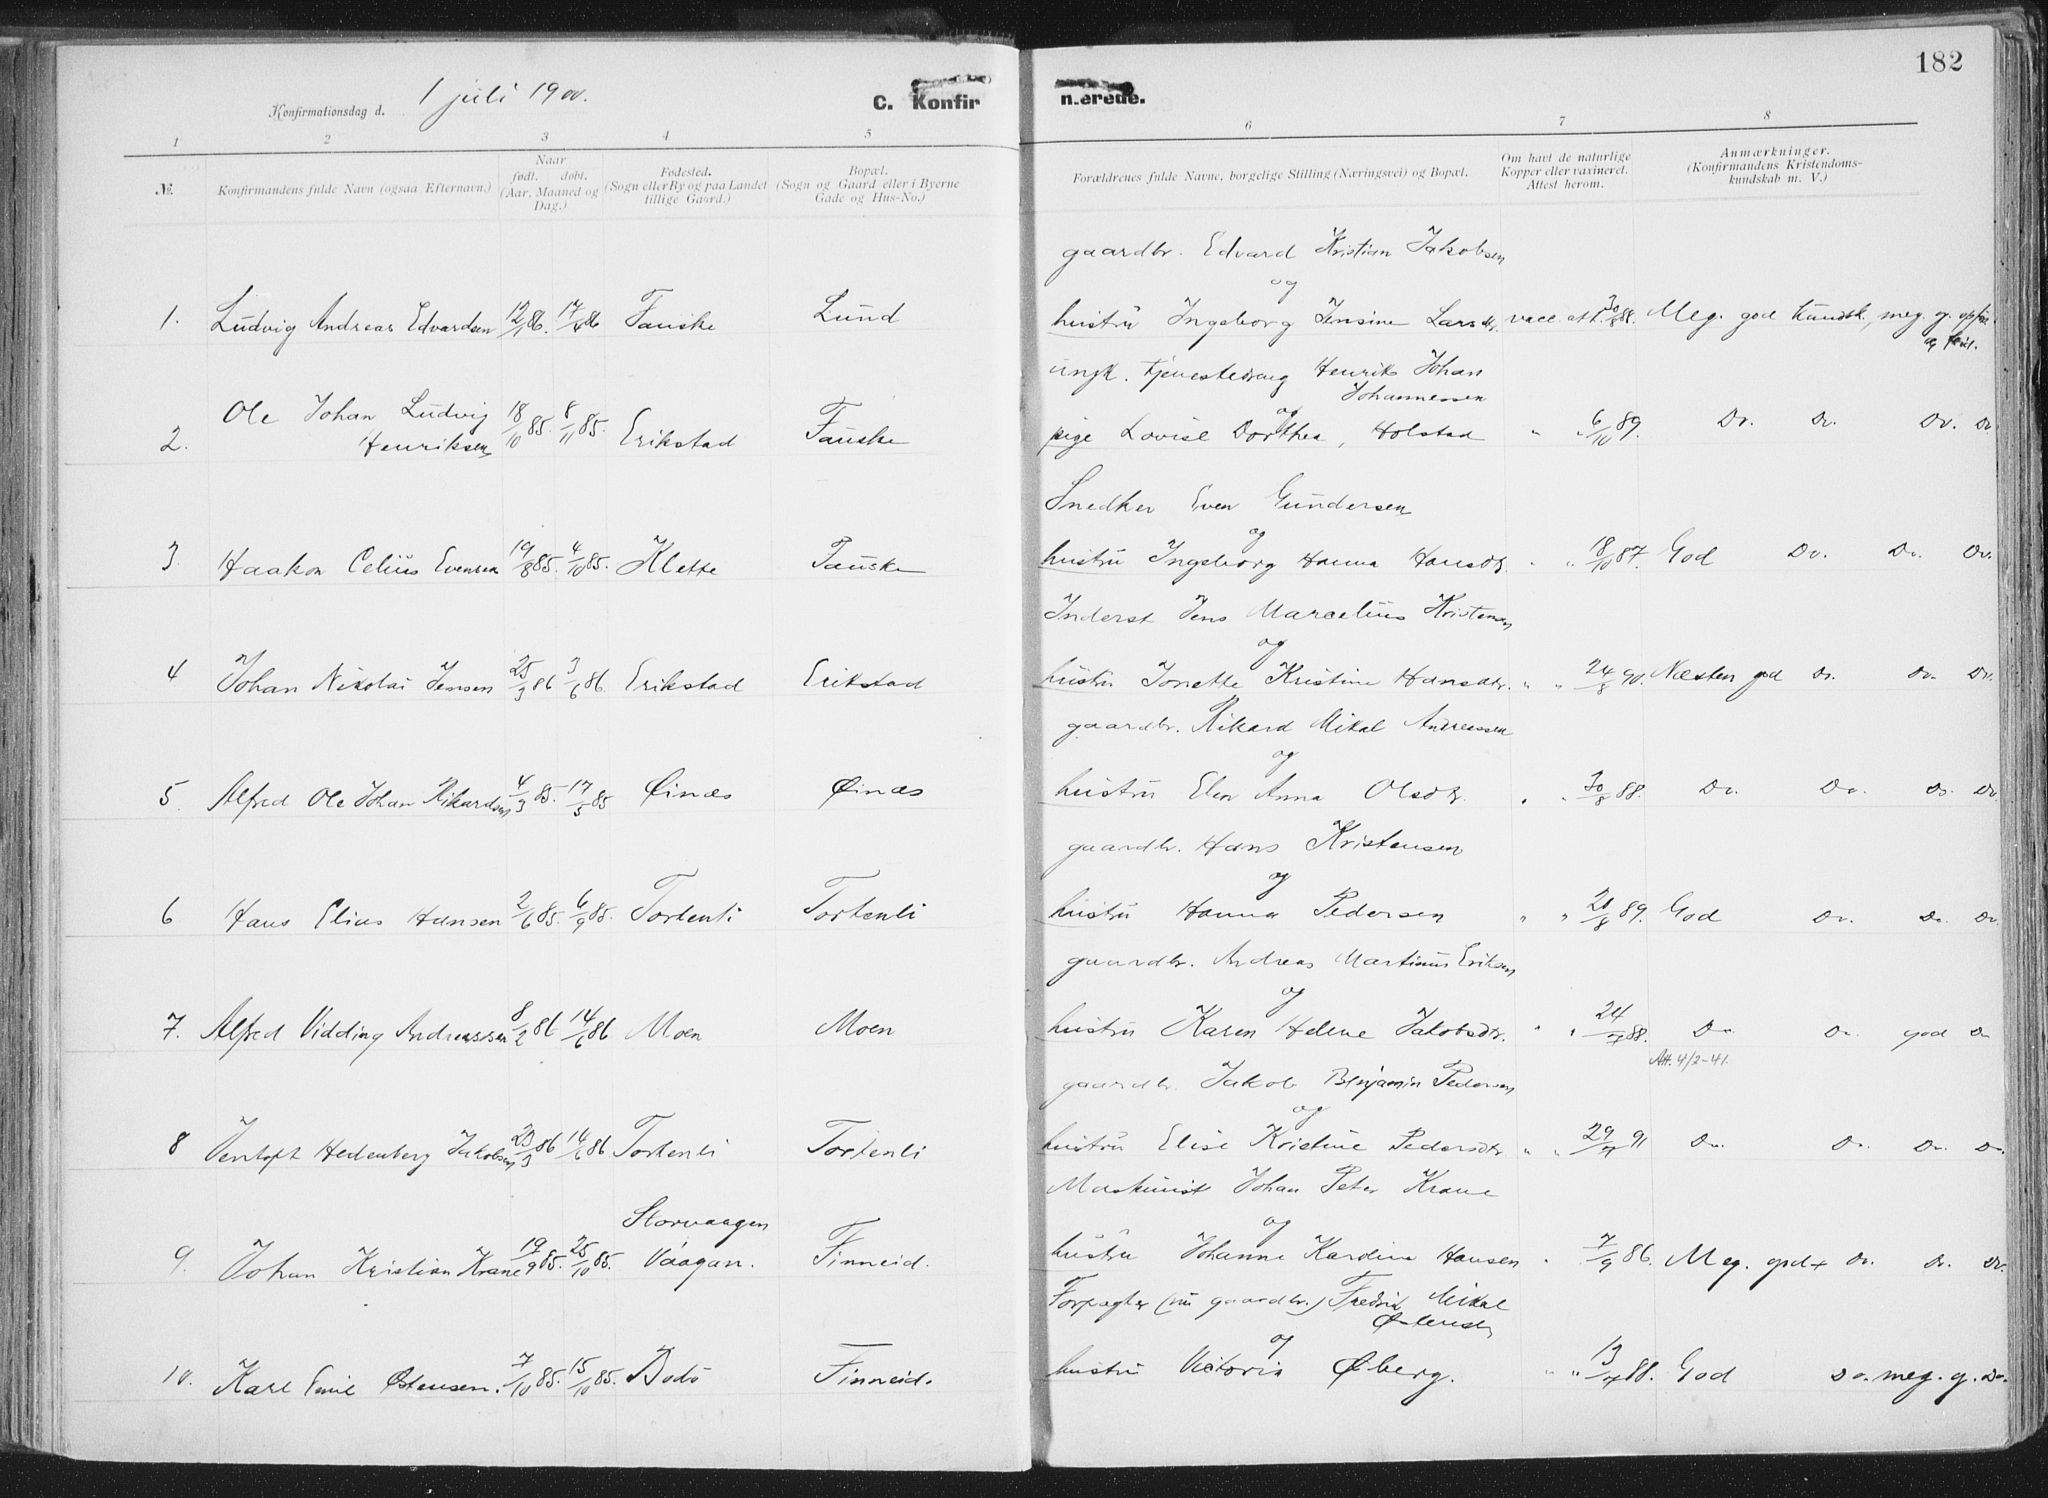 182
Konfirmationsdag d. 1 juli 1900.
C. Konfirmerede.
1 2 3 4 5 6 7 8
No. Konfirmandens fulde Navn (ogsaa Efternavn.) Naar født. døbt. (Aar, Maaned og Dag.) Fødested. (Sogn eller By og paa Landet tillige Gaard.) Bopæl. (Sogn og Gaard eller i Byerne Gade og Hus-No.) Forældrenes fulde Navne, borgelige Stilling (Næringsvei) og Bopæl. Om havt de naturlige Kopper eller vaxineret. Attest herom. Anmærkninger. (Konfirmandens Kristendoms-kundskab m. V.)
gaardbr. Edvard Kristian Jakobsen
og
1. Ludvig Andreas Edvardsen 12/1 86. 17/4 86 Fauske Lund hustru Ingeborg Jensine Larsdtr. vacc. att. 30/8 88. Meg. god kundsk., meg. g.
ungk. Tjenestedreng Henrik Johan
Johannessen
og
2. Ole Johan Ludvig Henriksen 18/10 85. 8/11 85. Erikstad Fauske pige Lovise Dorthea, Holstad " " 6/10 89. Do. Do. Do. Do
Snedker Even Gundersen
og
3. Haakon Celius Evensen 19/8 85. 4/10 85. Klette Fauske hustru Ingeborg Hanna Hansdtr. " " 18/10 87. God Do. Do. Do.
Inderst Jens Marcelius Kristensen
og
4 Johan Nikolai Jensen 25/3 86 3/6 86 Erikstad Erikstad hustru Jonette Kristine Hansdtr. " " 24/8 90. Næsten god Do. Do. Do.
gaardbr. Rikard Mikal Andreassen
og
5. Alfred Ole Johan Rikardsen 4/3 85. 17/5 85 Øinæs Øinæs hustru Elen Anna Olsdtr. " " 30/8 88. Do. Do. Do. Do.
gaardbr. Hans Kristensen
og
6 Hans Elias Hansen 2/6 85. 6/9 85. Tortenli Tortenli hustru Hanna Pedersen " " 28/8 89. God Do. Do. Do
gaardbr. Andreas Martinus Eriksen
og
7. Alfred Vidding Andreassen 8/2 86 14/6 86 Moen Moen hustru Karen Helene Jakobsdtr. " " 24/7 88. Do Do. god Do
Att. 4/2-41.
gaardbr. Jakob Benjamin Pedersen
og
8 Ventoft Hedenberg Jakobsen 23/3 86 14/6 86 Tortenli Tortenli hustru Elise Kristine Pedersdtr " " 29/7 91 Do. Do. Do. Do.
Maskinist Johan Peter Krane
og
9. Johan Kristian Krane 19/9 85. 25/10 85. Storvaagen Vaagan. Finneid. hustru Johanne Kardine Hansen " 7/9 86. Meg. god+ Do. Do. Do.
Forpagter (nu gaardbr.) Fredrik Mikal
Østensen
og
10. Karl Emil Østensen. 7/10 85. 15/10 85. Bodö Finneid. hustru Victoria Øberg. " " 13/7 88. God Do. meg. g. Do.